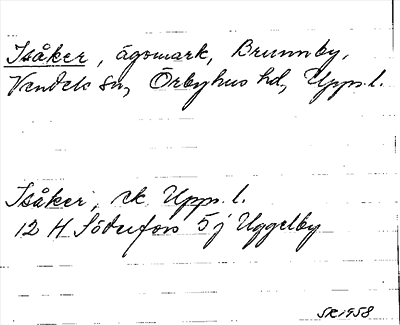 Isåker, ägomark, Brunnby,
Vendels sn, Örbyhus hd, Upps. l.
Isåker, ek. Upps. l.
12 H Söderfors 5 j Uggelby
SR 1958